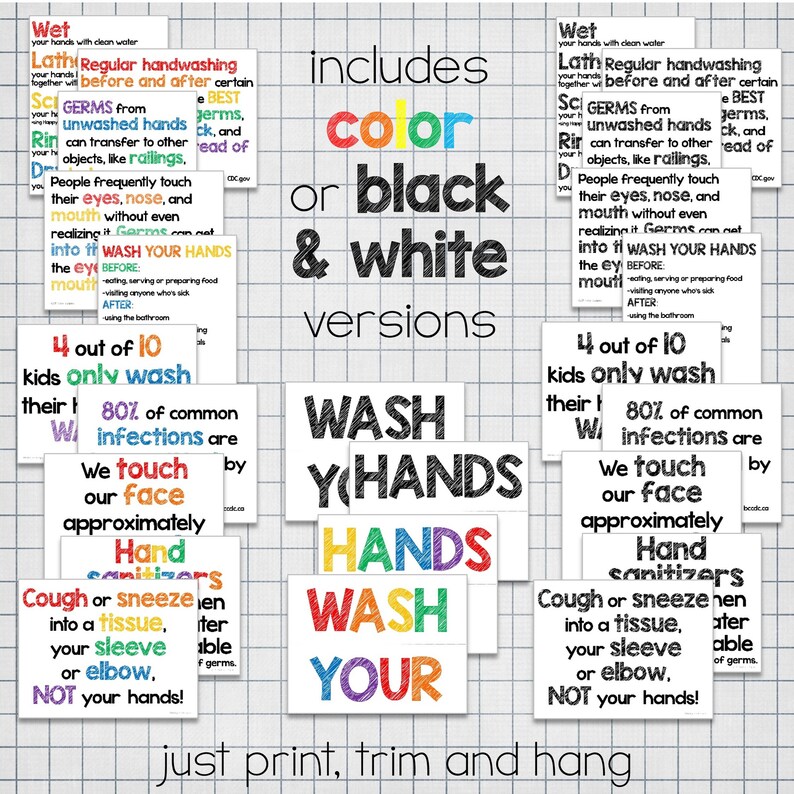 Wet
your hands with clean water
Lath
your hands
together wit
Sc
your hand
Ri
your ha
D
your
Regular handwashing
before and after certain
e BEST
germs,
ck, and
read of
CDC.gov
GERMS from
unwashed hands
can transfer to other
objects, like railings,
People frequently touch
their eyes, nose, and
mouth without even
realizing it. Germs can get
into th
the eye
mouth
WASH YOUR HANDS
BEFORE:
-eating, serving or preparing food
-visiting anyone who's sick
AFTER:
-using the bathroom
4 out of 10
kids only wash
their h
WA
80% of common
infections are
by
We touch
our face
approximately
Hand
sanitizers
hen
ater
able
of germs.
Cough or sneeze
into a tissue,
your sleeve
or elbow,
NOT your hands!
includes
color
or black
& white
versions
WASH
YO
HANDS
HANDS
WASH
YOUR
Wet
your hands with clean water
Lath
your hands
together wit
Sc
your hand
Ri
your ha
D
your
Regular handwashing
before and after certain
e BEST
germs,
ck, and
read of
CDC.gov
GERMS from
unwashed hands
can transfer to other
objects, like railings,
People frequently touch
their eyes, nose, and
mouth without even
realizing it. Germs can get
into th
the eye
mouth
WASH YOUR HANDS
BEFORE:
-eating, serving or preparing food
-visiting anyone who's sick
AFTER:
-using the bathroom
4 out of 10
kids only wash
their h
WA
80% of common
infections are
by
bccdc.ca
We touch
our face
approximately
Hand
sanitizers
hen
ater
able
of germs.
Cough or sneeze
into a tissue,
your sleeve
or elbow,
NOT your hands!
just print, trim and hang